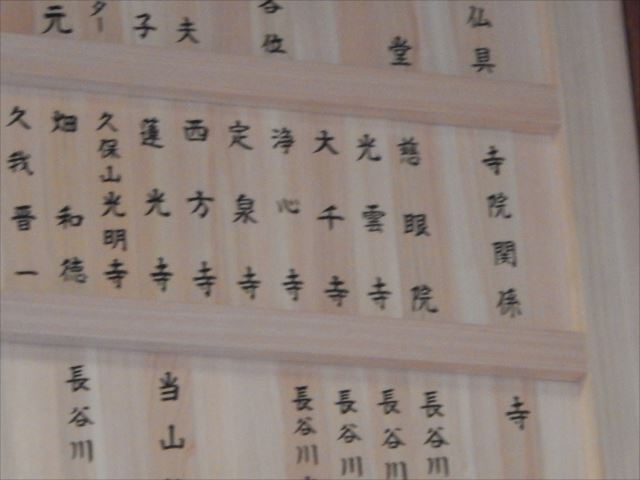 仏具
堂
各位
夫
子
ター
元
寺院関係
慈眼院
光雲寺
大千寺
浄心寺
定泉寺
西方寺
蓮光寺
久保山光明寺
畑和徳
久我晋一
寺
長谷川
長谷川
長谷川
長谷川
当山
長谷川